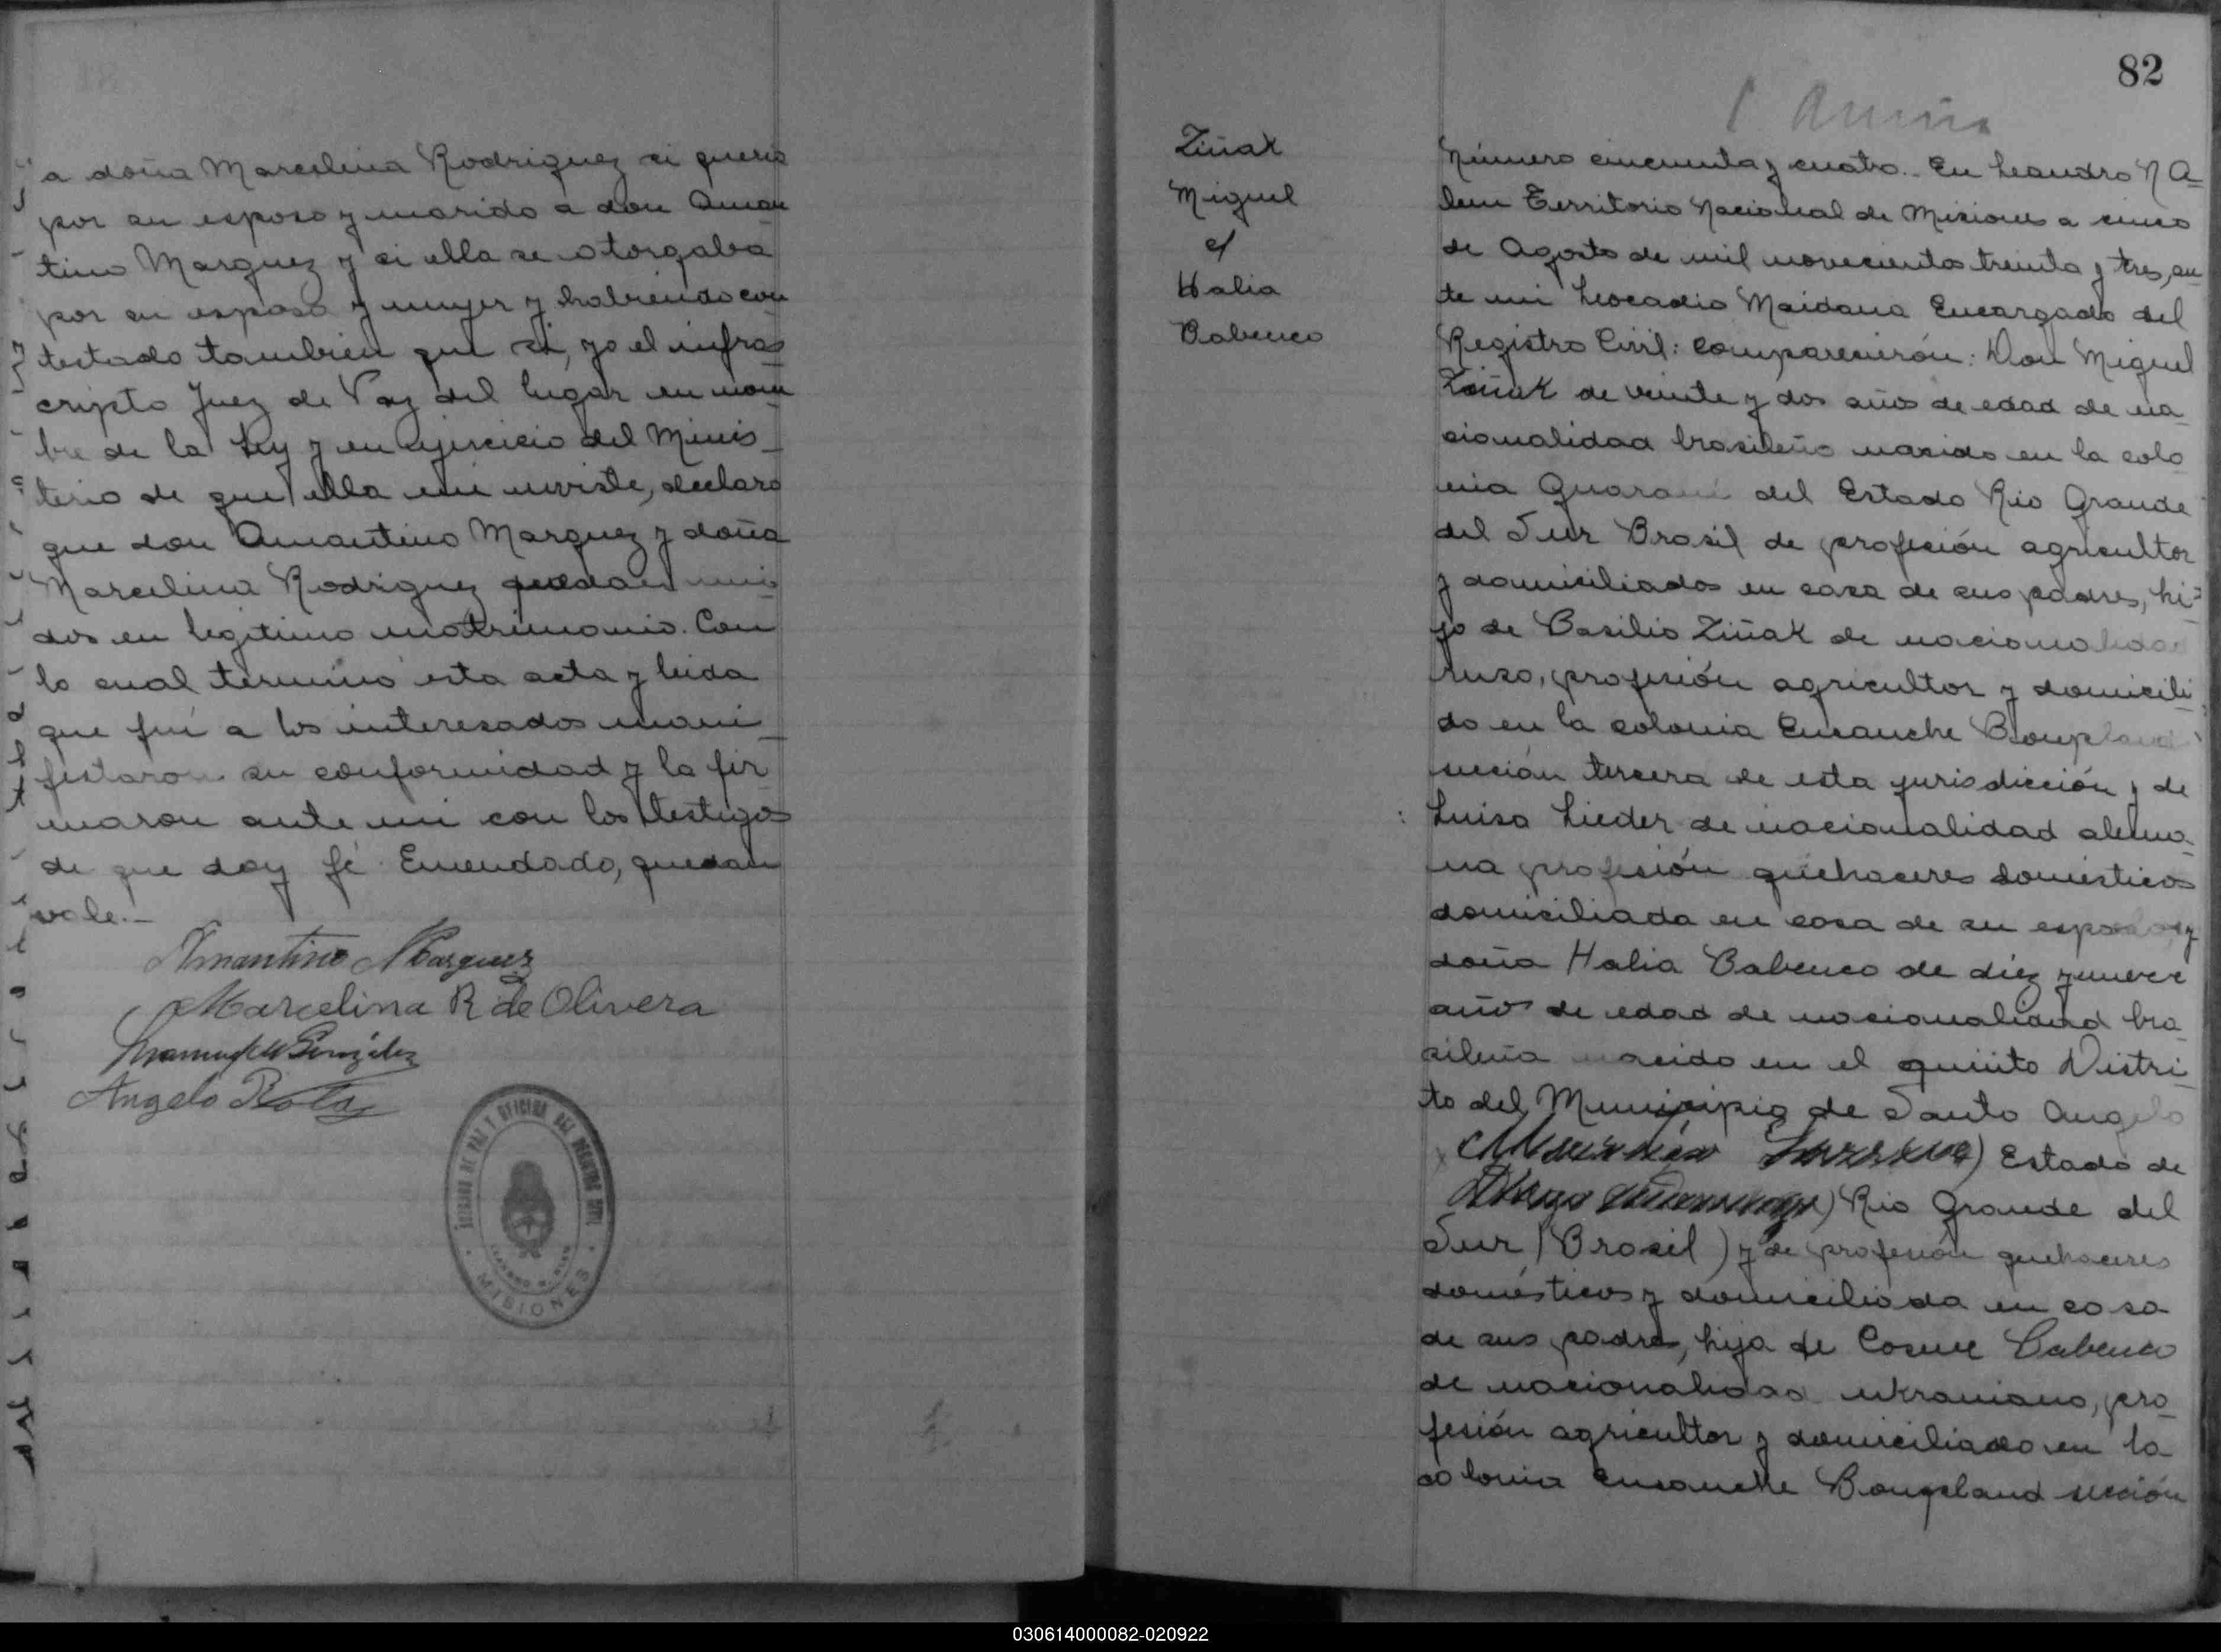 a doña Marcelina Rodriguez si queria
por su esposo y marido a don Aman
tino Marquez y si ella se otorgaba
por su esposa y mujer y habiendo con
testado tambien que si, yo el infras
cripto Juez de Paz del lugar en nom
bre de la Ley y en ejercicio del Minis_
terio de que ella me inviste, declaro
que don Amantino Marquez y doña
Marcelina Rodriguez quedan uni
dos en legitimo matrimonio. Con
lo cual terminó esta acta y leida
que fué a los interesados mani_
festaron su conformidad y la fir
maron ante mi con los testigos
de que doy fé. Emendado, quedan
vale.-
Amantino Marquez
Marcelina R de Olivera
González
Angelo
JUZGADO DE PAZ Y OFICINA DEL REGISTRO CIVIL
LEANDRO N. ALEM
MISIONES
82
Ziñak
Miguel
c/
Halia
Babenco
Número cincuenta y cuatro.- En Leandro N A_
lem Territorio Nacional de Misiones a cinco
de Agosto de mil novecientos treinta y tres, an
te mi Leocadio Maidana Encargado del
Registro Civil: comparecierón: Don Miguel
Ziñak de veinte y dos años de edad de na
cionalidad brasileño nasido en la colo
nia Guarani del Estado Rio Grande
del Sur Brasil de profesión agricultor
y domiciliados en casa de sus padres, hi_
jo de Basilio Ziñak de nacionalidad
ruso, profesión agricultor y domicili
do en la colonia Ensanche Bonpland
sección tercera de esta jurisdicción y de
Luisa Lieder de nacionalidad alema_
na profesión quehaceres domésticos
domiciliada en casa de su esposo, y
doña Halia Babenco de diez y nueve
años de edad de nacionalidad bra
sileña nacido en el quinto Distri_
to del Municipio de Santo Angelo
Estado de
Rio Grande del
Sur (Brasil) y de profesión quehaceres
domésticos y domiciliada en casa
de sus padres, hija de Cosme Babenco
de nacionalidad ukraniano, pro_
fesión agricultor y domiciliado en la
colonia Ensanche Bonpland sección
030614000082-020922